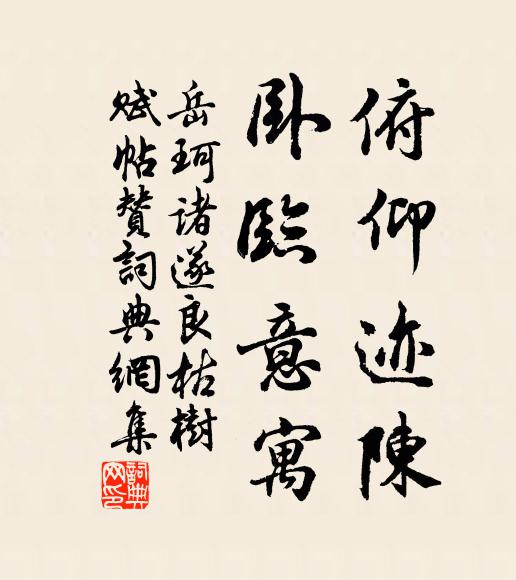 俯仰迹陳
卧臨意寓
岳珂诸遂良枯樹
赋帖贊詞典網集
詞典网印